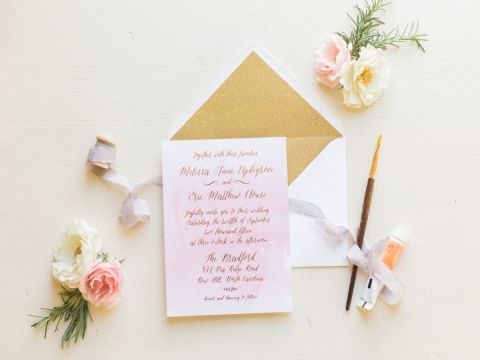 together with their families
Melissa Anne Updegrove
and
Eric Matthew Clouse
joyfully invite you to their wedding
Saturday, the twelfth of september
two thousand fifteen
at three o'clock in the afternoon
The Bradford
523 Pea Ridge Road
New Hill, North Carolina
dinner and dancing to follow